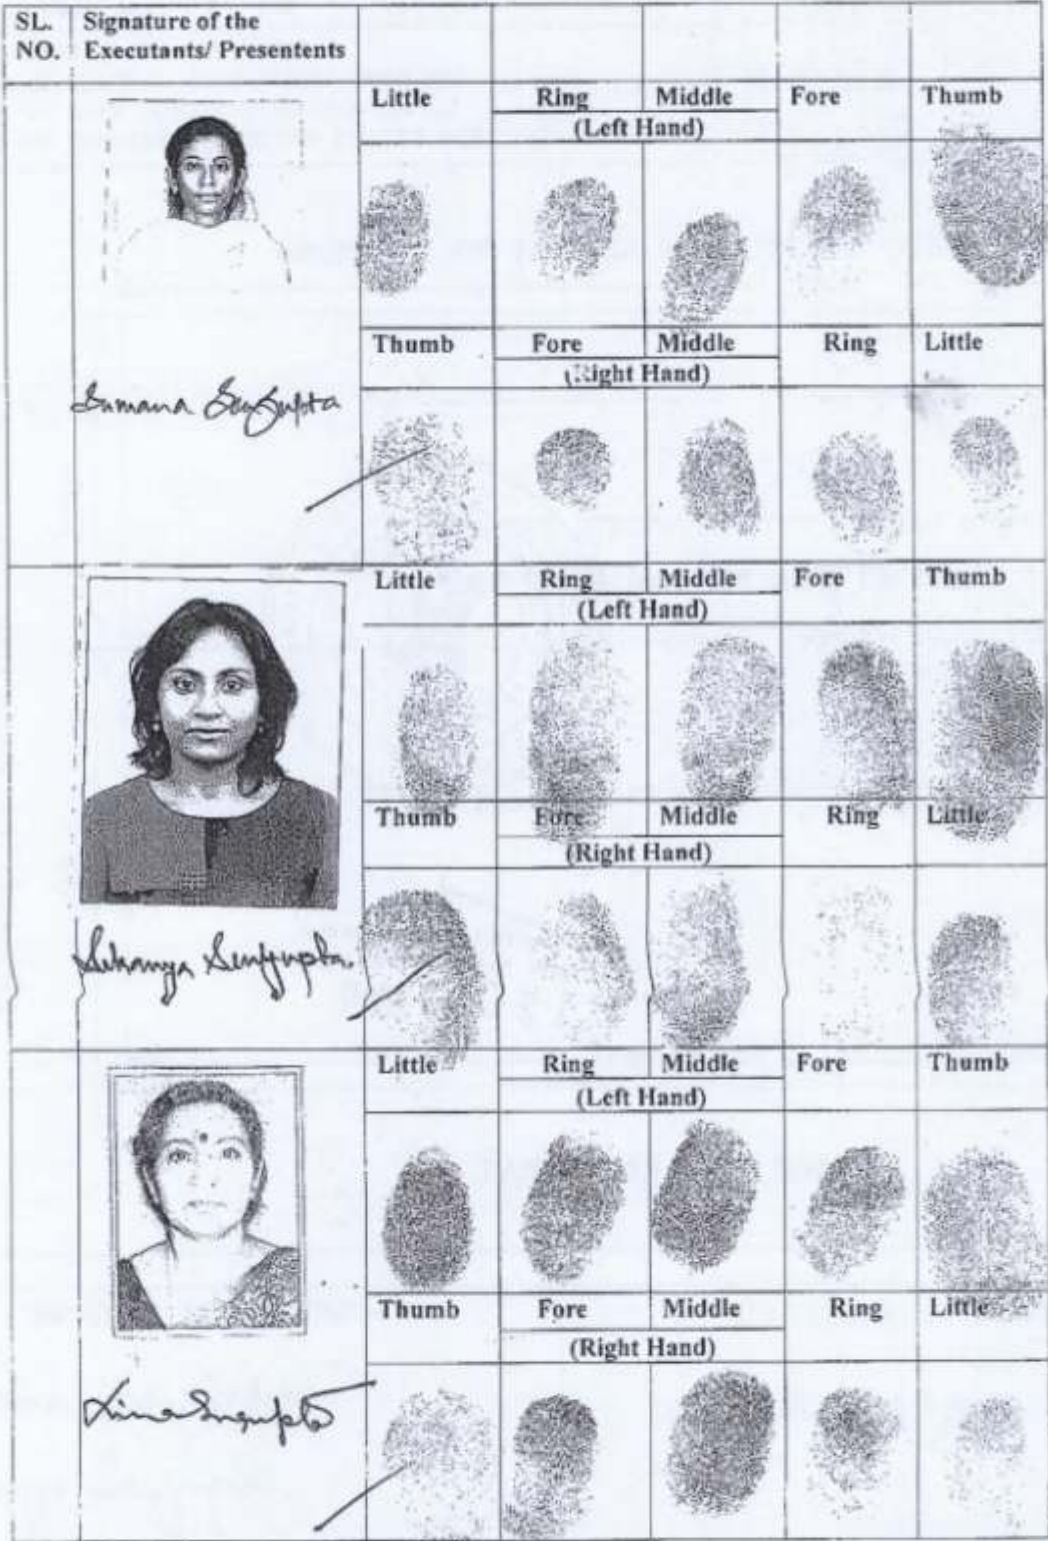 SL. NO. Signature of the Executants/ Presentents
Little Ring Middle Fore Thumb
(Left Hand)
Thumb Fore Middle Ring Little
(Right Hand)
Sumana SenGupta
Little Ring Middle Fore Thumb
(Left Hand)
Thumb Fore Middle Ring Little
(Right Hand)
Sukanya Sengupta.
Little Ring Middle Fore Thumb
(Left Hand)
Thumb Fore Middle Ring Little
(Right Hand)
Lina Sengupta